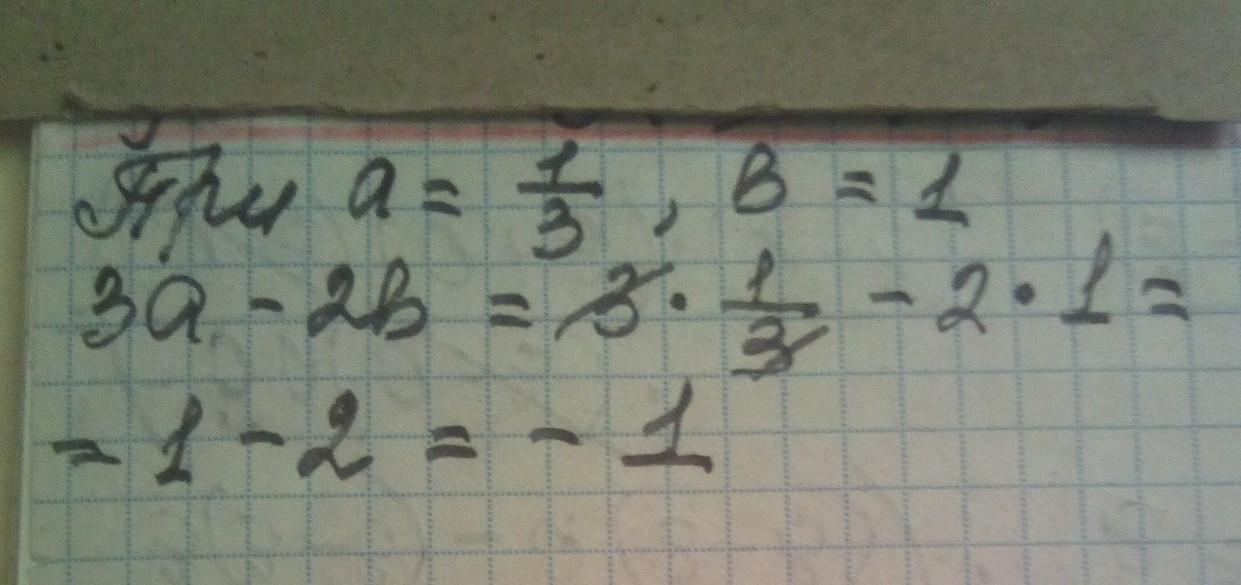 При a = 1/3, в = 1
3a - 2в = 3 · 1/3 - 2 · 1 =
= 1 - 2 = - 1